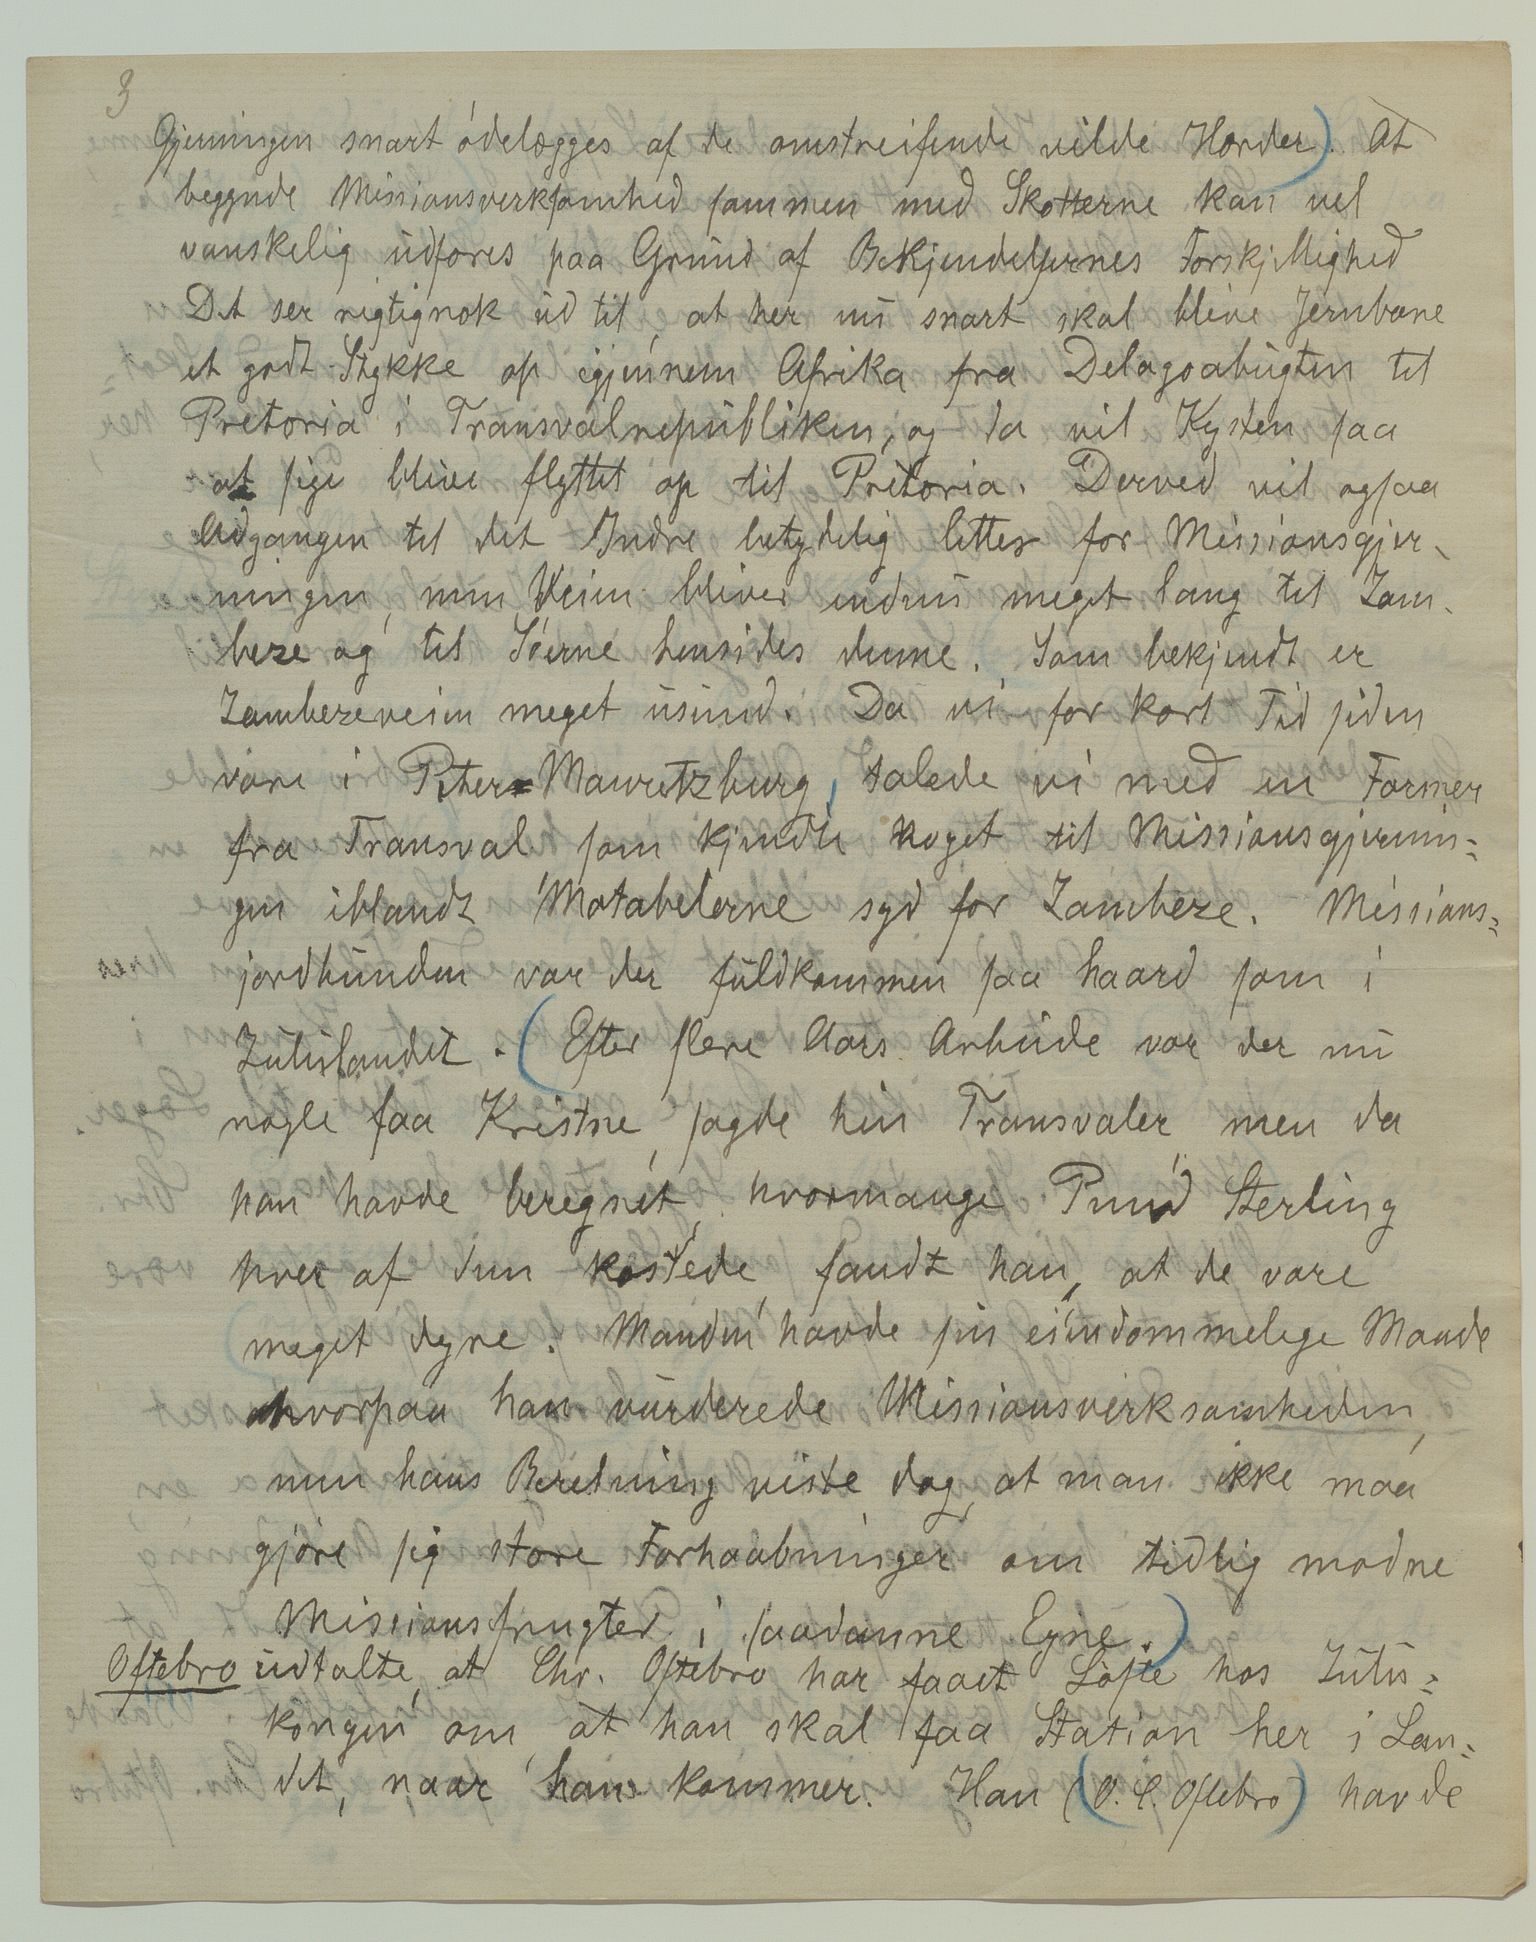 3
Gjerningen snart ódelægges af de omstreifende vilde Horder). At
begynde Missionsverksomhed sammen med Skotterne kan vel
vanskelig udføres paa Grund af Bekjendelsernes Forskjellighed
Det ser rigtignok ud til at her nu snart skal blive Jernbane
et godt Stykke op igjennem Afrika fra Delagoabugten til
Pretoria i Transvalrepubliken, og da vil Kysten saa
at sige blive flyttet op til Pretoria. Derved vil ogsaa
Adgangen til det Indre betydelig lettes for Missionsgjer-
ningen, men Veien bliver endnu meget lang til Zam-
beze og til Sóerne hensides denne. Som bekjendt er
Zambezeveien meget usund. Da vi for kort Tid siden
vare i Peter-Mauretzburg, talede vi med en Farmer
fra Transval som kjendte noget til Missionsgjernin=
gen iblandt Matabelerne syd for Zambeze. Missions=
jordbunden var der fuldkommen saa haard som i
Zululandet. (Efter flere Aars Arbeide var der nu
nogle faa Kristne, sagde hin Transvaler men da
han havde beregnet, hvormange Pund Sterling
hver af dem kostede, fandt han, at de vare
meget dyre. Manden havde sin eiendommelige Maade
hvorpaa han vurderede Missionsverksomheden,
men hans Beretning viste dog, at man ikke maa
gjóre sig store Forhaabninger om tidlig modne
Missionsfrugter i saadanne Egne.)
Oftebro udtalte, at Chr. Oftebro har faaet Lófte hos Zulu=
kongen om, at han skal faa Station her i Lan=
det, naar han kommer. Han (O. C. Oftebro) havde